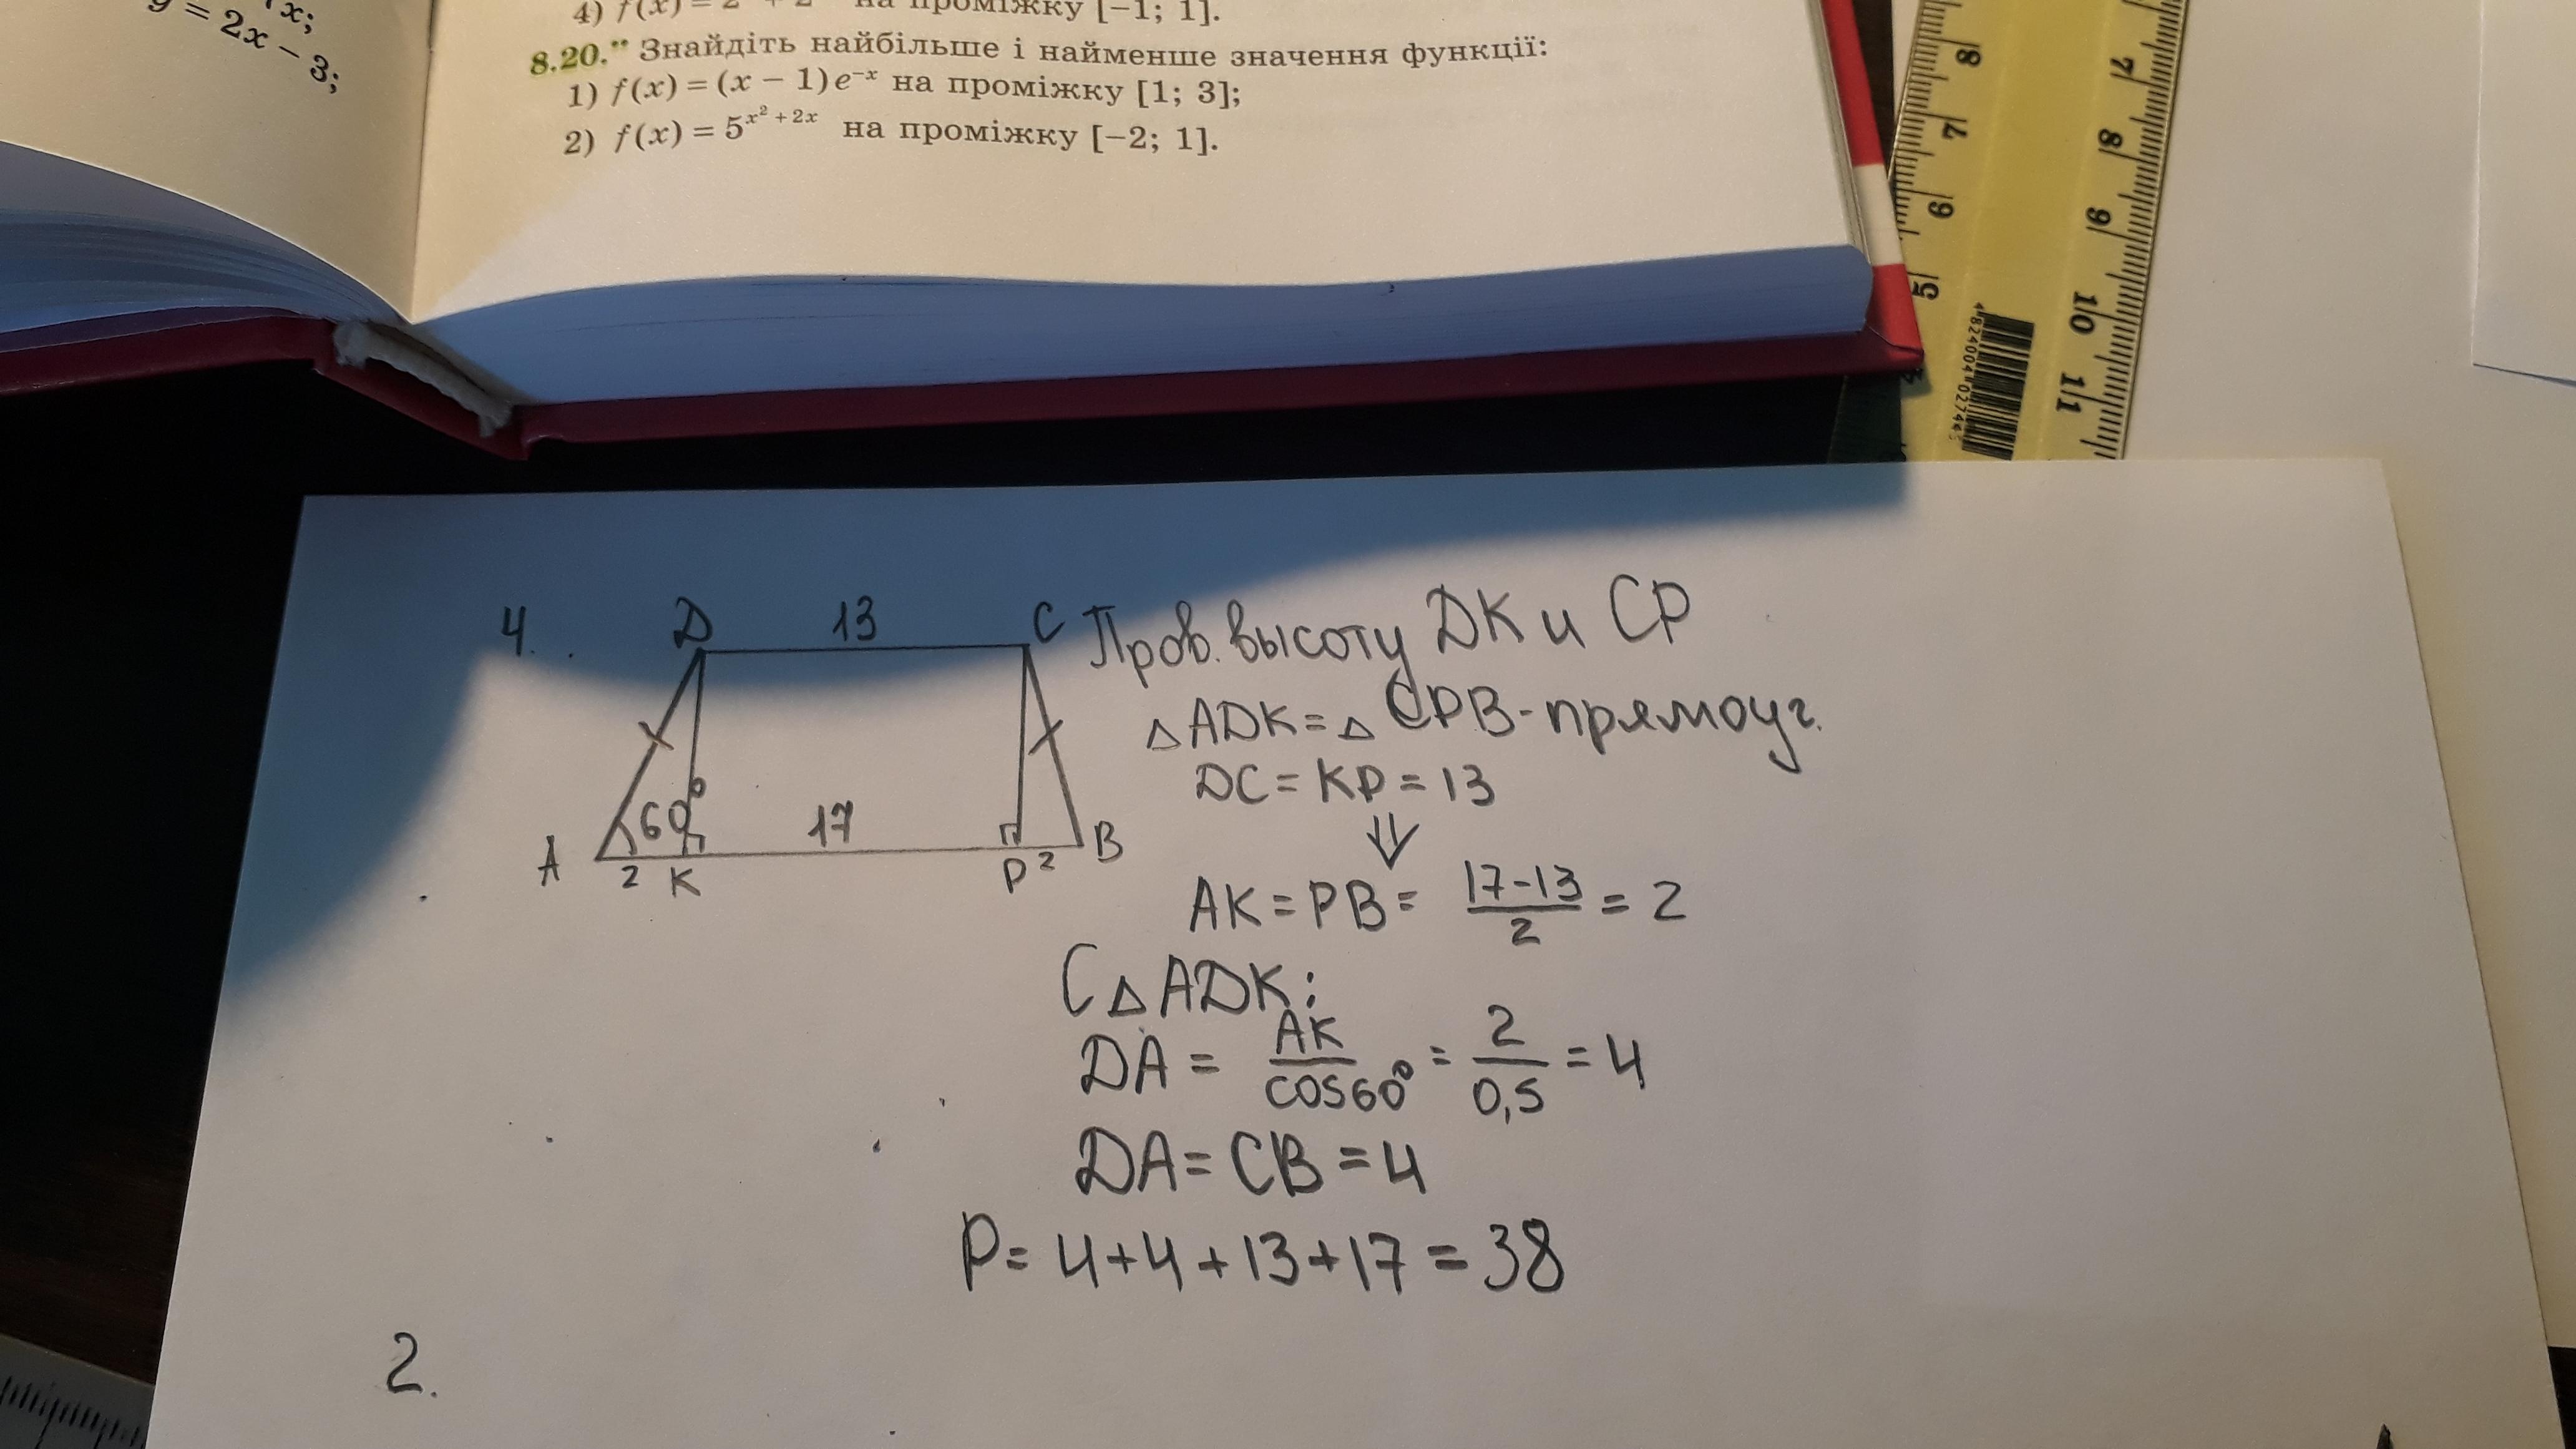 x;
y = 2x − 3;
4) f(x) = 2 + 2 на проміжку [−1; 1].
8.20.¨ Знайдіть найбільше і найменше значення функції:
1) f(x) = (x − 1)e⁻ˣ на проміжку [1; 3];
2) f(x) = 5^(x² + 2x) на проміжку [−2; 1].
8 7 6 5
7 8 9 10 11
4.
D 13 C
60°
17
A 2 K P 2 B
Пров. высоту DK и CP
△ADK = △CPB - прямоуг.
DC = KP = 13
⇓
AK = PB = (17-13)/2 = 2
С △ADK:
DA = AK/cos60° = 2/0,5 = 4
DA = CB = 4
P = 4+4+13+17 = 38
2.